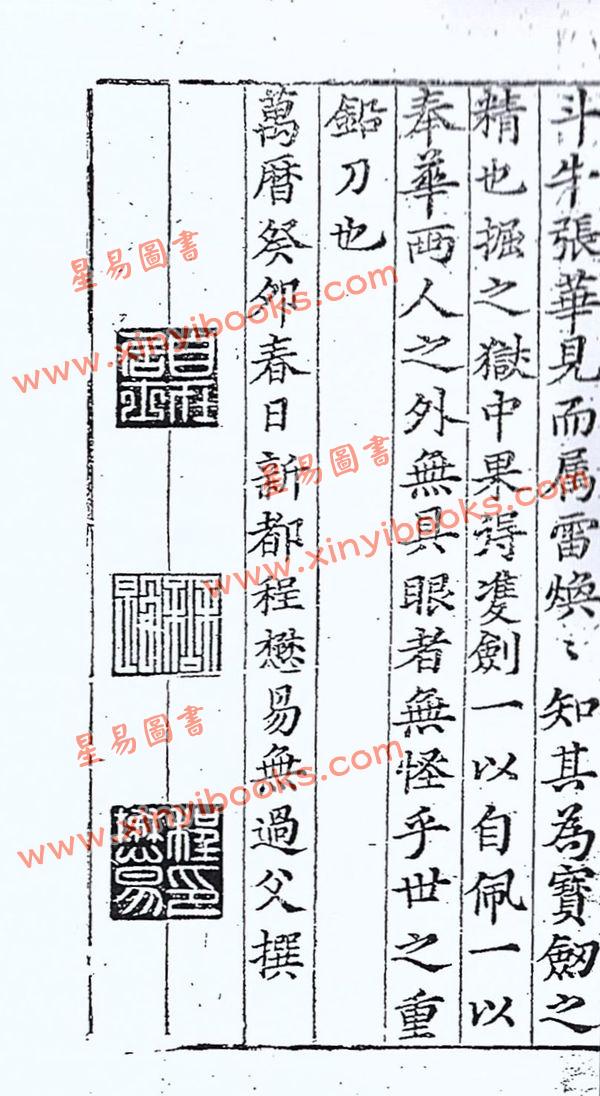 斗牛張華見而属雷煥〻知其為寶劒之
精也掘之獄中果得雙劍一以自佩一以
奉華両人之外無具眼者無怪乎世之重
鉛刀也
萬曆癸卯春日新都程懋易無過父撰
程印懋易
星易圖書
www.xinyibooks.com
星易圖書
www.xinyibooks.com
星易圖書
www.xinyibooks.com